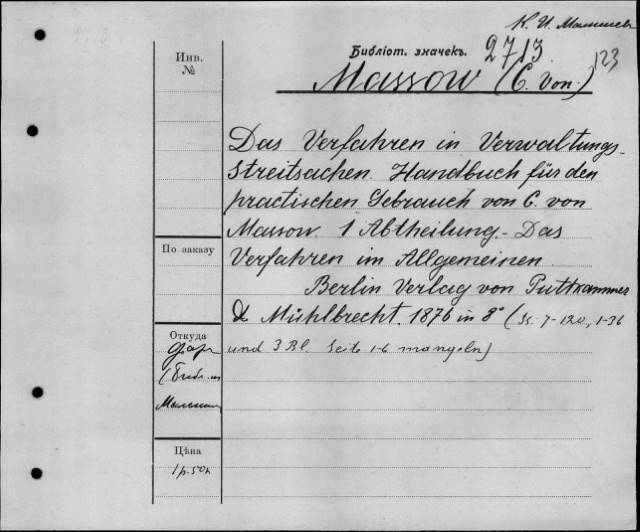 К. И. Малышев
Библіот. значекъ. 2713. 123
Massow (C. von.)
Инв.
№
Das Verfahren in Verwaltungs-
streitsachen. Handbuch für den
practischen Gebrauch von C. von
Massow. 1 Abtheilung. - Das
Verfahren im Allgemeinen.
Berlin Verlag von Puttkammer
& Mühlbrecht. 1876 in 8° (Ss. 7-120, 1-36
und 3 Bl. Seite 1-6 mangeln)
По заказу
Откуда
Малыш
Цѣна
1р. 50к